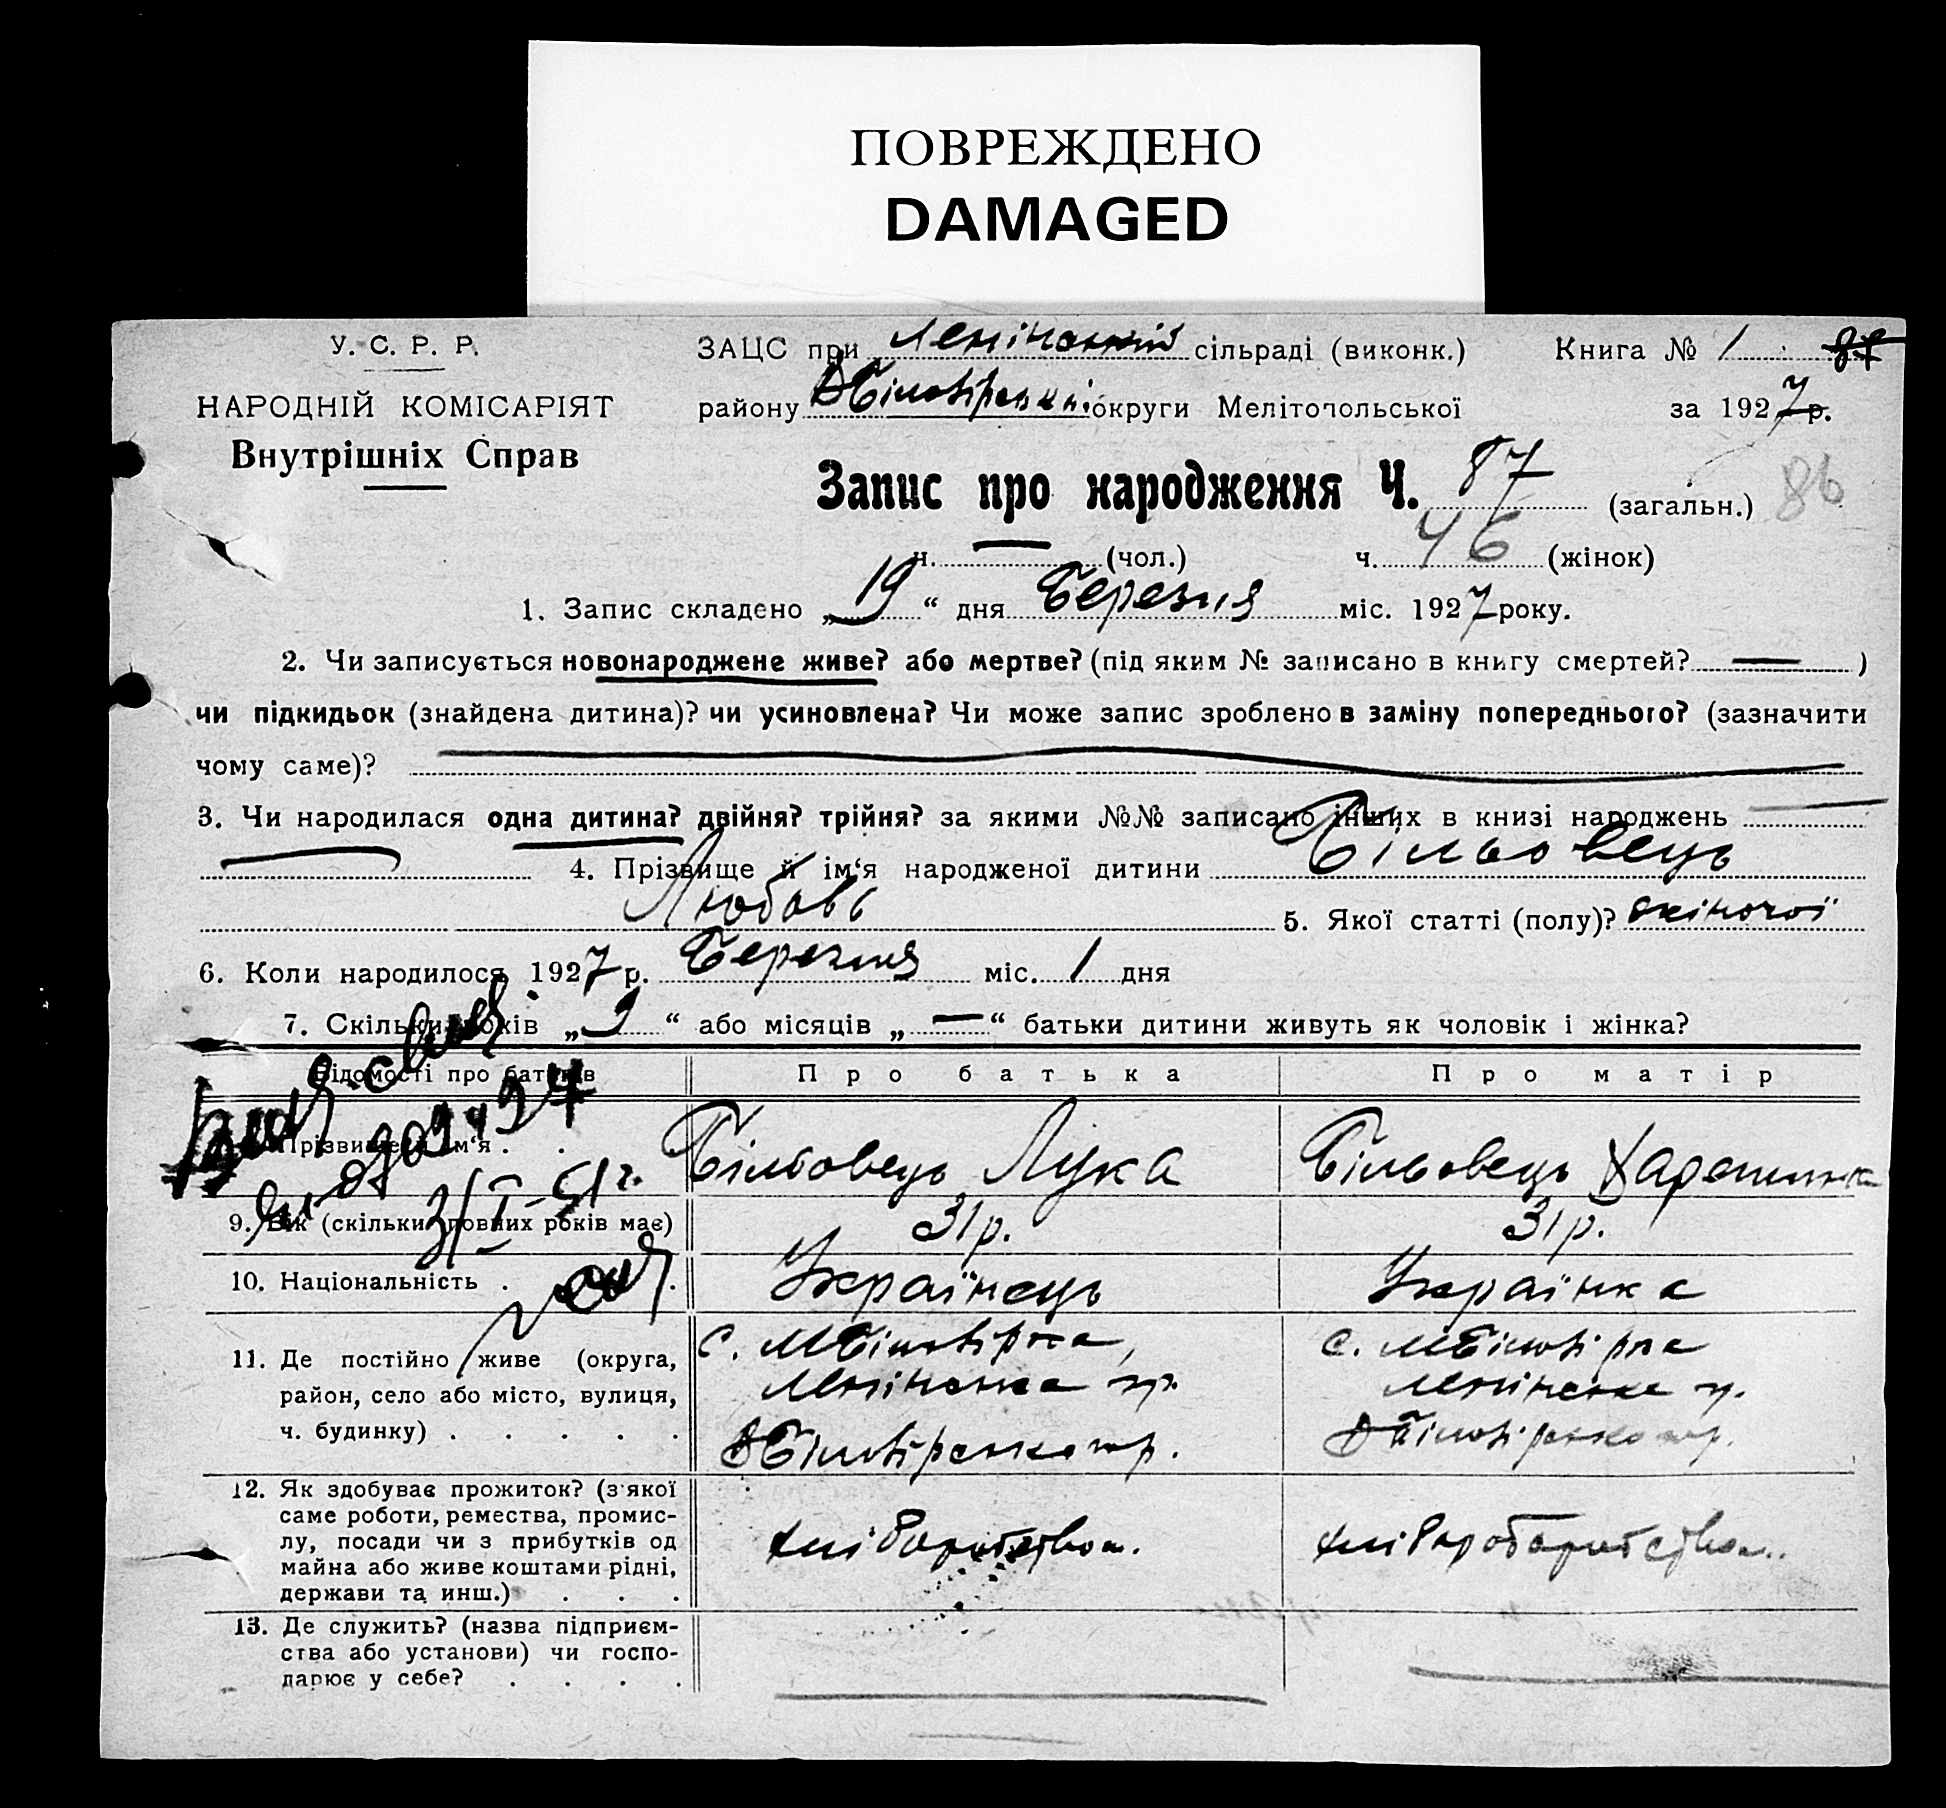 ПОВРЕЖДЕНО
DAMAGED
У. С. Р. Р.
НАРОДНІЙ КОМІСАРІЯТ
Внутрішніх Справ
ЗАЦС при Ленінській сільраді (виконк.) Книга № 1 87
району округи Мелітопольської за 1927 р.
Запис про народження Ч. 87 (загальн.) 86
ч. — (чол.) ч. 46 (жінок)
1. Запис складено „19“ дня Березня міс. 1927 року.
2. Чи записується новонароджене живе? або мертве? (під яким № записано в книгу смертей? — )
чи підкидьок (знайдена дитина)? чи усиновлена? Чи може запис зроблено в заміну попереднього? (зазначити
чому саме)?
3. Чи народилася одна дитина? двійня? трійня? за якими №№ записано інших в книзі народжень —
4. Прізвище й ім‘я народженої дитини Більовець
Любовь 5. Якої статті (полу)? жіночої
6. Коли народилося 1927 р. Березня міс. 1 дня
7. Скільки років „9“ або місяців „—“ батьки дитини живуть як чоловік і жінка?
Відомості про батьків Про батька Про матір
Прізвище й ім‘я . . Більовець Лука Більовець
9. Вік (скільки повних років має) 31 р. 31 р.
31/I-51 г.
10. Національність . . Українець Українка
11. Де постійно живе (округа,
район, село або місто, вулиця,
ч. будинку) . . . . .
с. МБіловірка,
Ленінська
с. МБіловірка
Ленінська
12. Як здобуває прожиток? (з якої
саме роботи, ремества, промис-
лу, посади чи з прибутків од
майна або живе коштами рідні,
держави та инш.) . . .
хліборобством.
13. Де служить? (назва підприєм-
ства або установи) чи госпо-
дарює у себе? . . . .